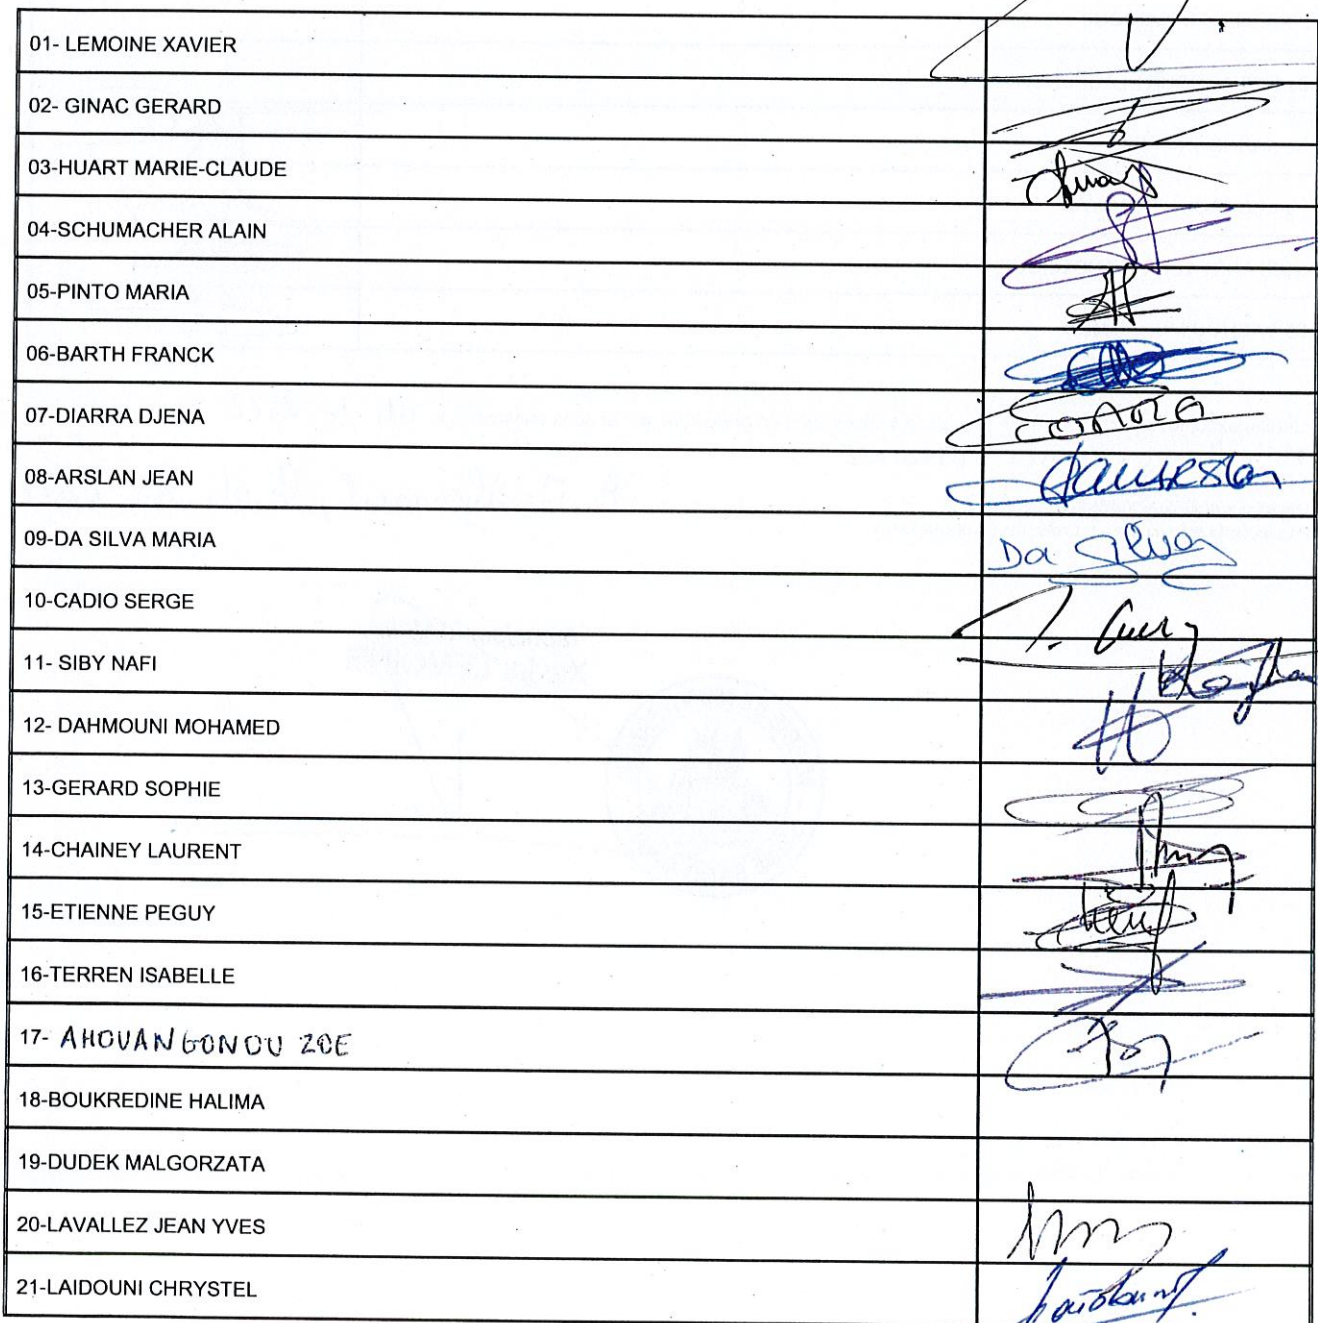 01- LEMOINE XAVIER
02- GINAC GERARD
03-HUART MARIE-CLAUDE
04-SCHUMACHER ALAIN
05-PINTO MARIA
06-BARTH FRANCK
07-DIARRA DJENA
08-ARSLAN JEAN
09-DA SILVA MARIA
Da Silva
10-CADIO SERGE
11- SIBY NAFI
12- DAHMOUNI MOHAMED
13-GERARD SOPHIE
14-CHAINEY LAURENT
15-ETIENNE PEGUY
16-TERREN ISABELLE
17- AHOUANGONOU ZOE
18-BOUKREDINE HALIMA
19-DUDEK MALGORZATA
20-LAVALLEZ JEAN YVES
21-LAIDOUNI CHRYSTEL